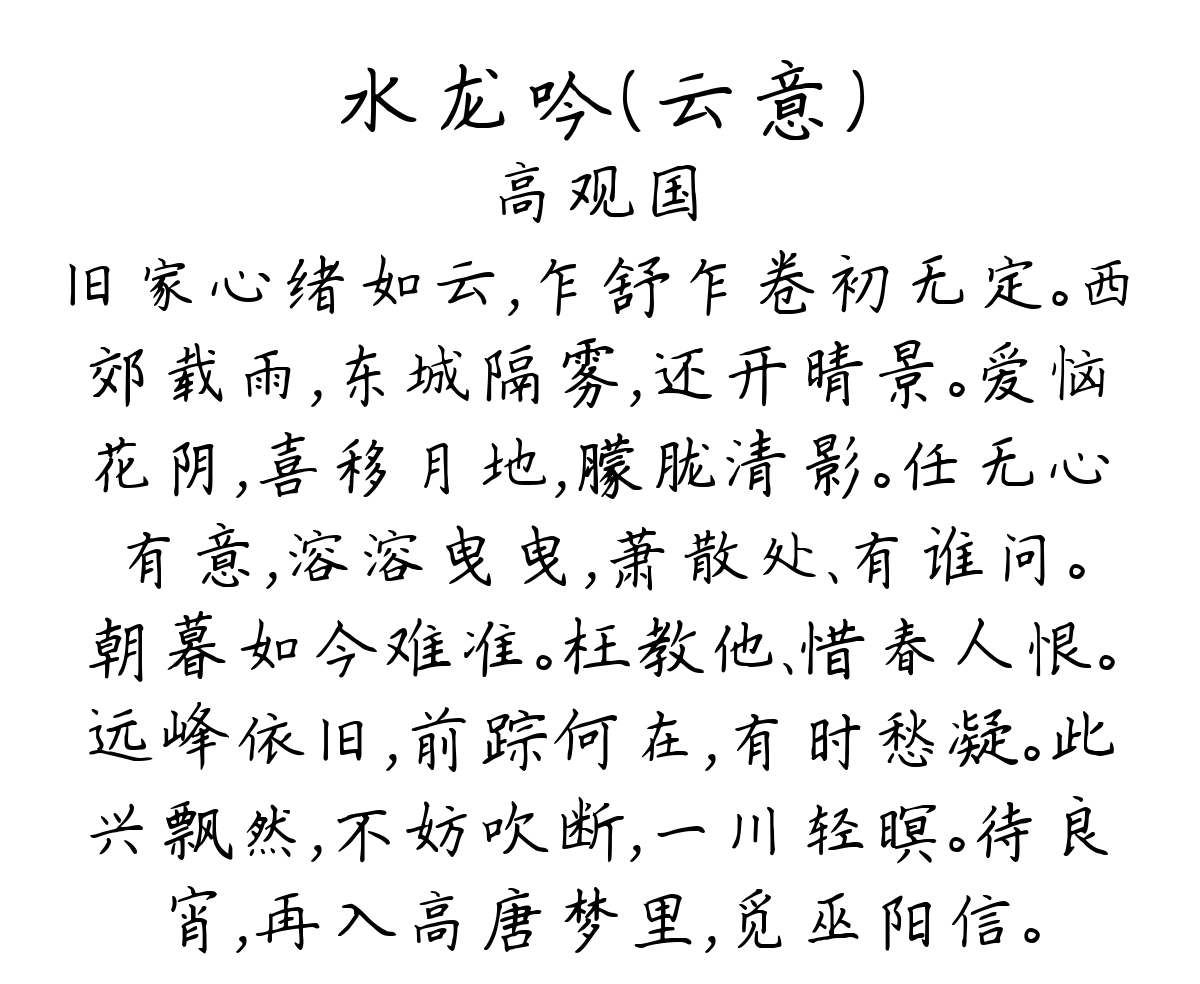 水龙吟(云意)
高观国
旧家心绪如云,乍舒乍卷初无定。西
郊载雨,东城隔雾,还开晴景。爱恼
花阴,喜移月地,朦胧清影。任无心
有意,溶溶曳曳,萧散处、有谁问。
朝暮如今难准。枉教他、惜春人恨。
远峰依旧,前踪何在,有时愁凝。此
兴飘然,不妨吹断,一川轻暝。待良
宵,再入高唐梦里,觅巫阳信。